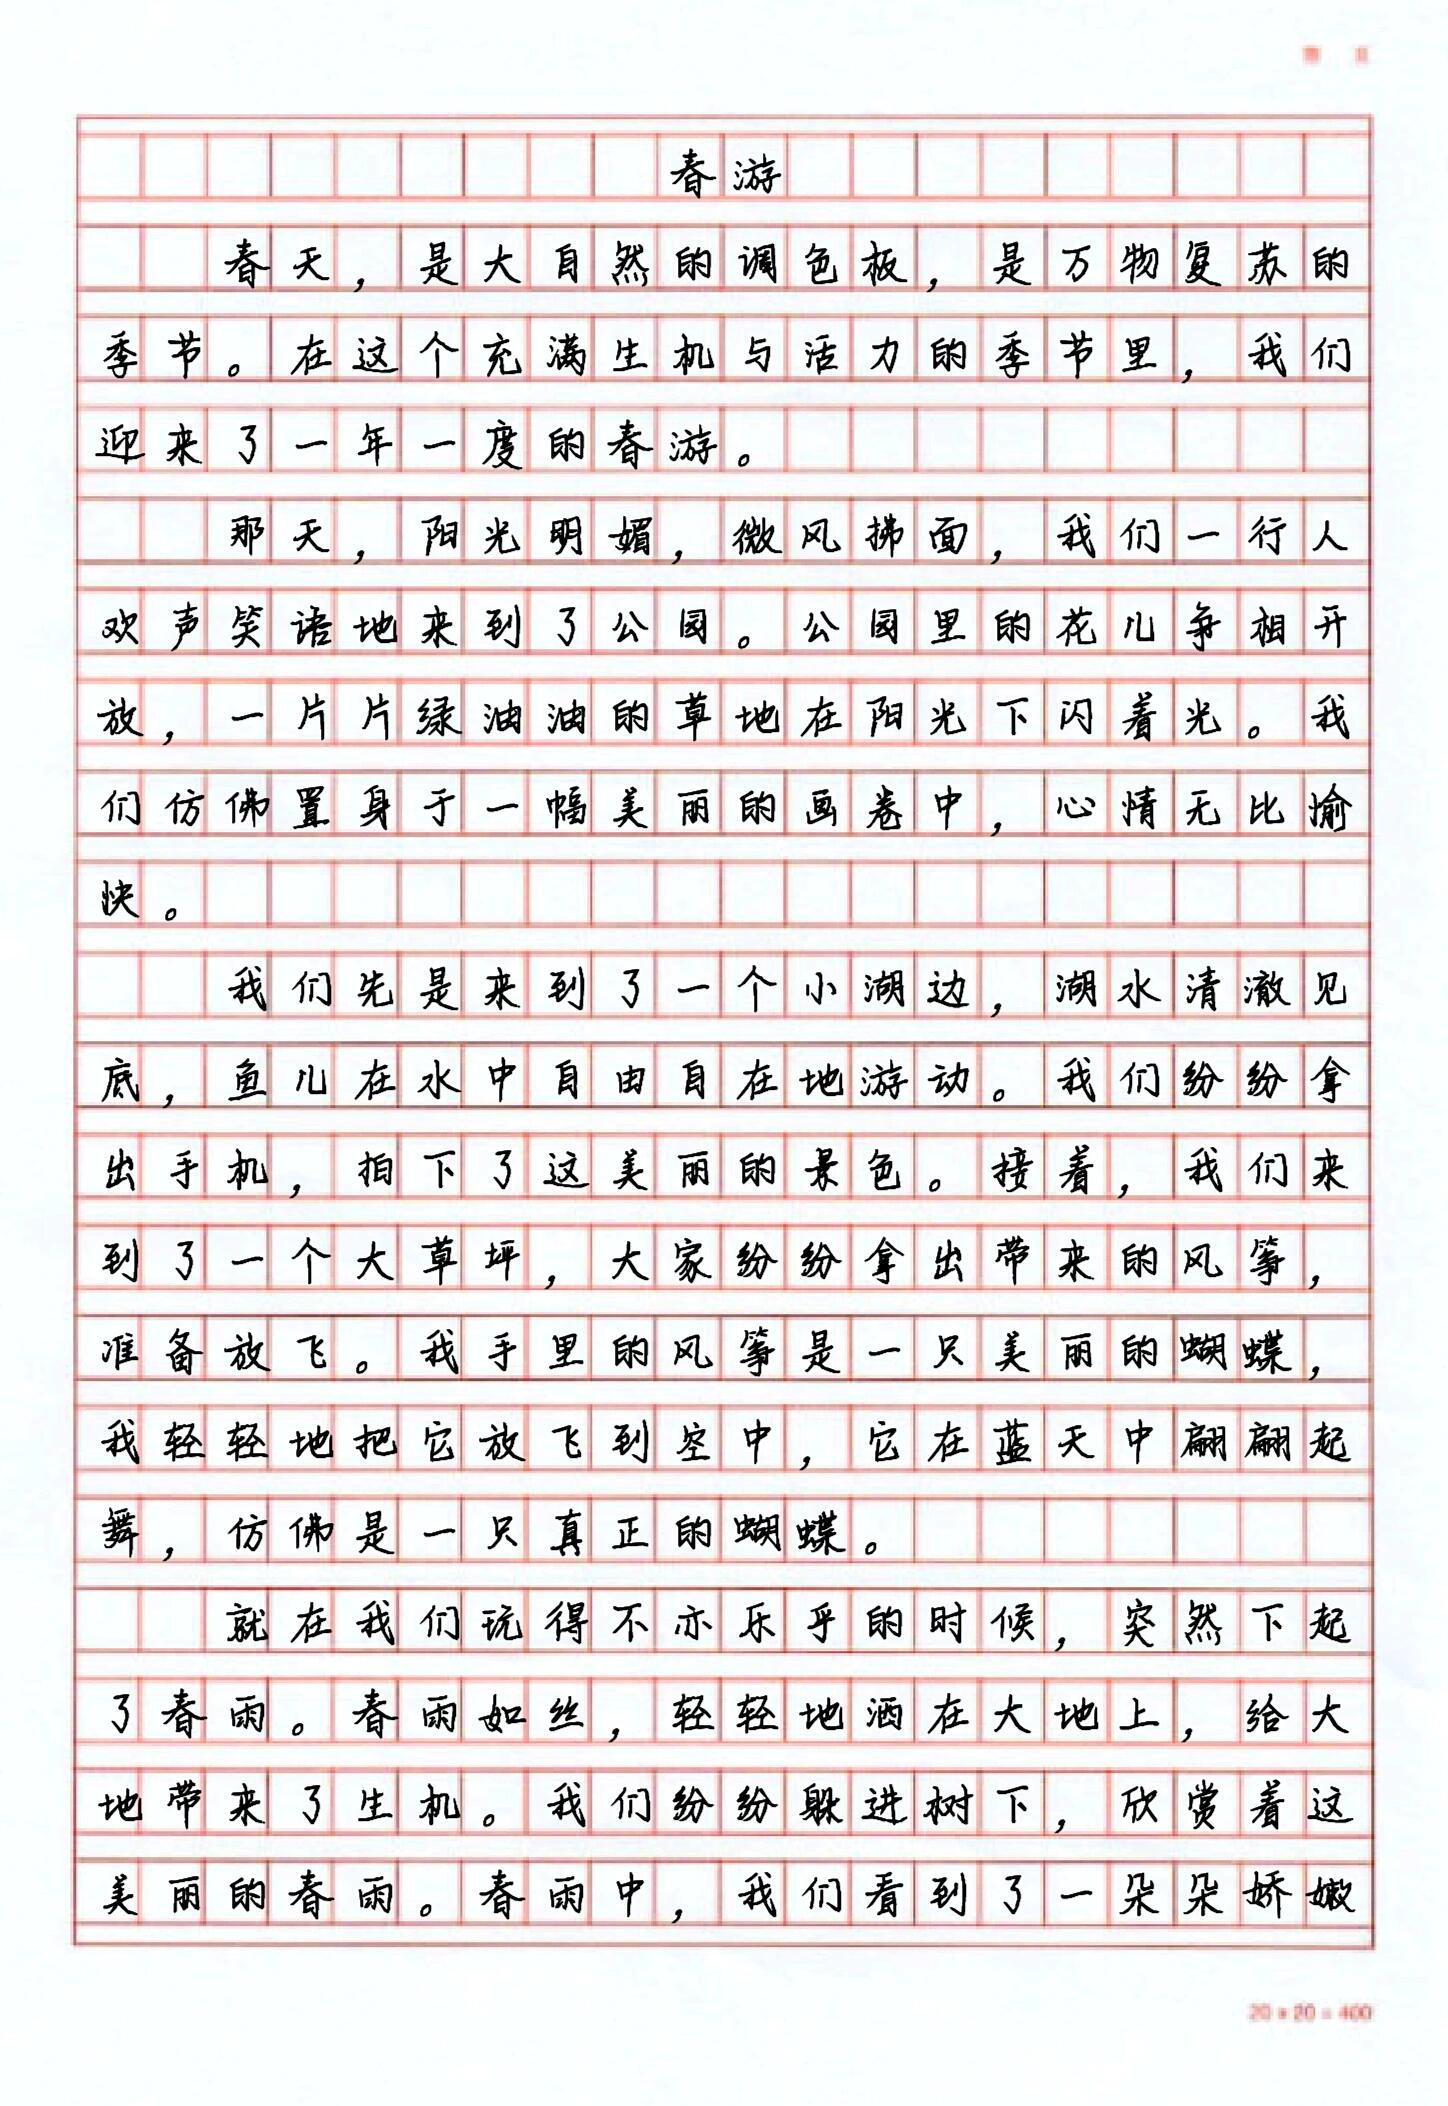 春游
春天，是大自然的调色板，是万物复苏的
季节。在这个充满生机与活力的季节里，我们
迎来了一年一度的春游。
那天，阳光明媚，微风拂面，我们一行人
欢声笑语地来到了公园。公园里的花儿争相开
放，一片片绿油油的草地在阳光下闪着光。我
们仿佛置身于一幅美丽的画卷中，心情无比愉
快。
我们先是来到了一个小湖边，湖水清澈见
底，鱼儿在水中自由自在地游动。我们纷纷拿
出手机，拍下了这美丽的景色。接着，我们来
到了一个大草坪，大家纷纷拿出带来的风筝，
准备放飞。我手里的风筝是一只美丽的蝴蝶，
我轻轻地把它放飞到空中，它在蓝天中翩翩起
舞，仿佛是一只真正的蝴蝶。
就在我们玩得不亦乐乎的时候，突然下起
了春雨。春雨如丝，轻轻地洒在大地上，给大
地带来了生机。我们纷纷躲进树下，欣赏着这
美丽的春雨。春雨中，我们看到了一朵朵娇嫩
20×20=400